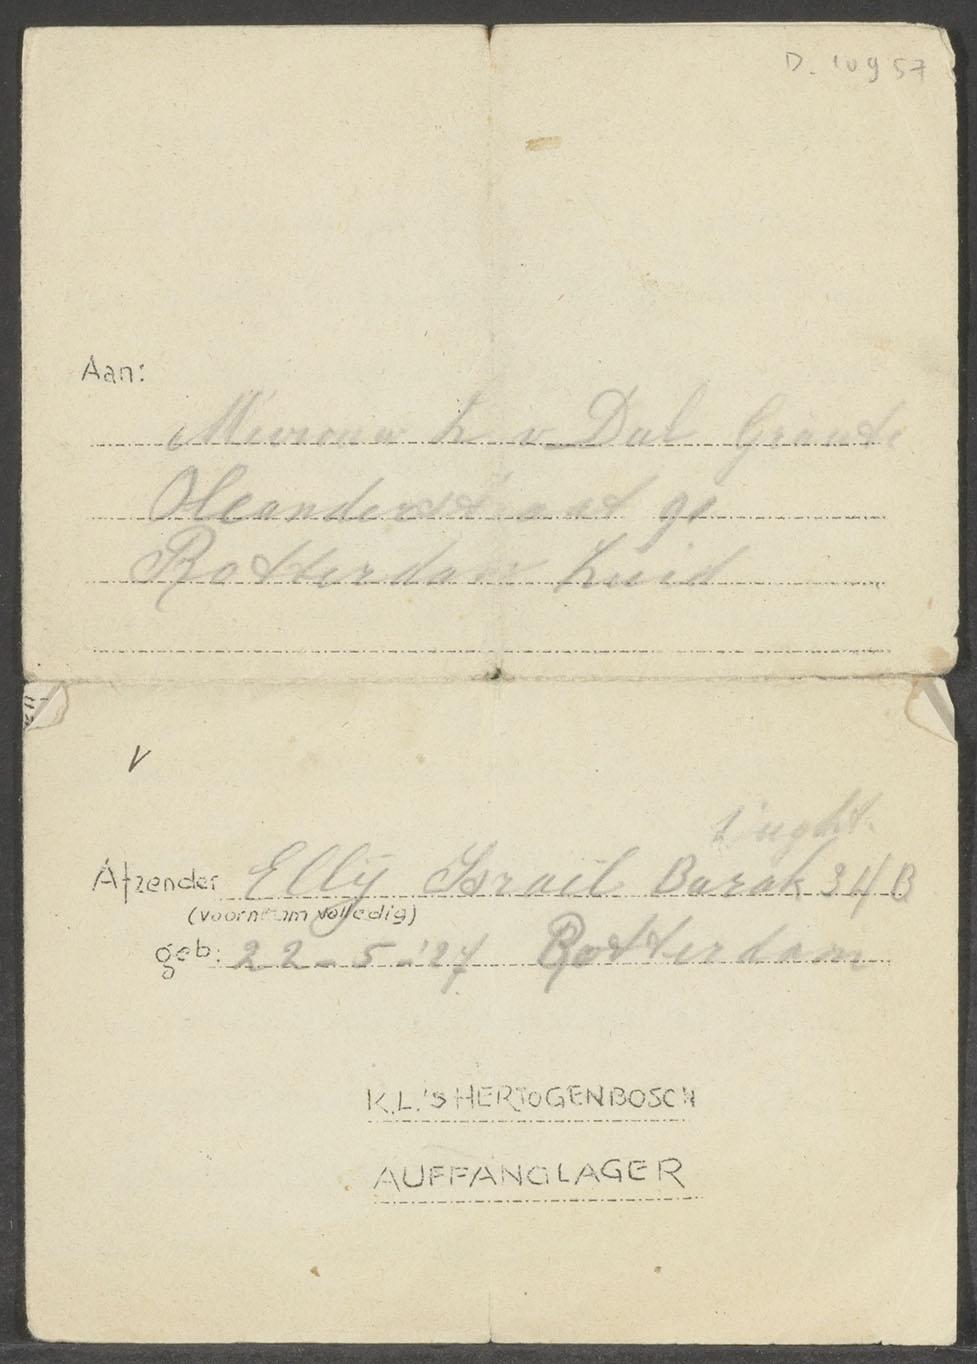 D. 10957
Aan:
Mevrouw L v Dal Grande
Oleanderstraat 91
Rotterdam Zuid
V
Vught.
Afzender Elly Israil Barak 34 B
(voornaam volledig)
geb: 22-5-'27 Rotterdam
K.L.'s HERTOGENBOSCH
AUFFANGLAGER